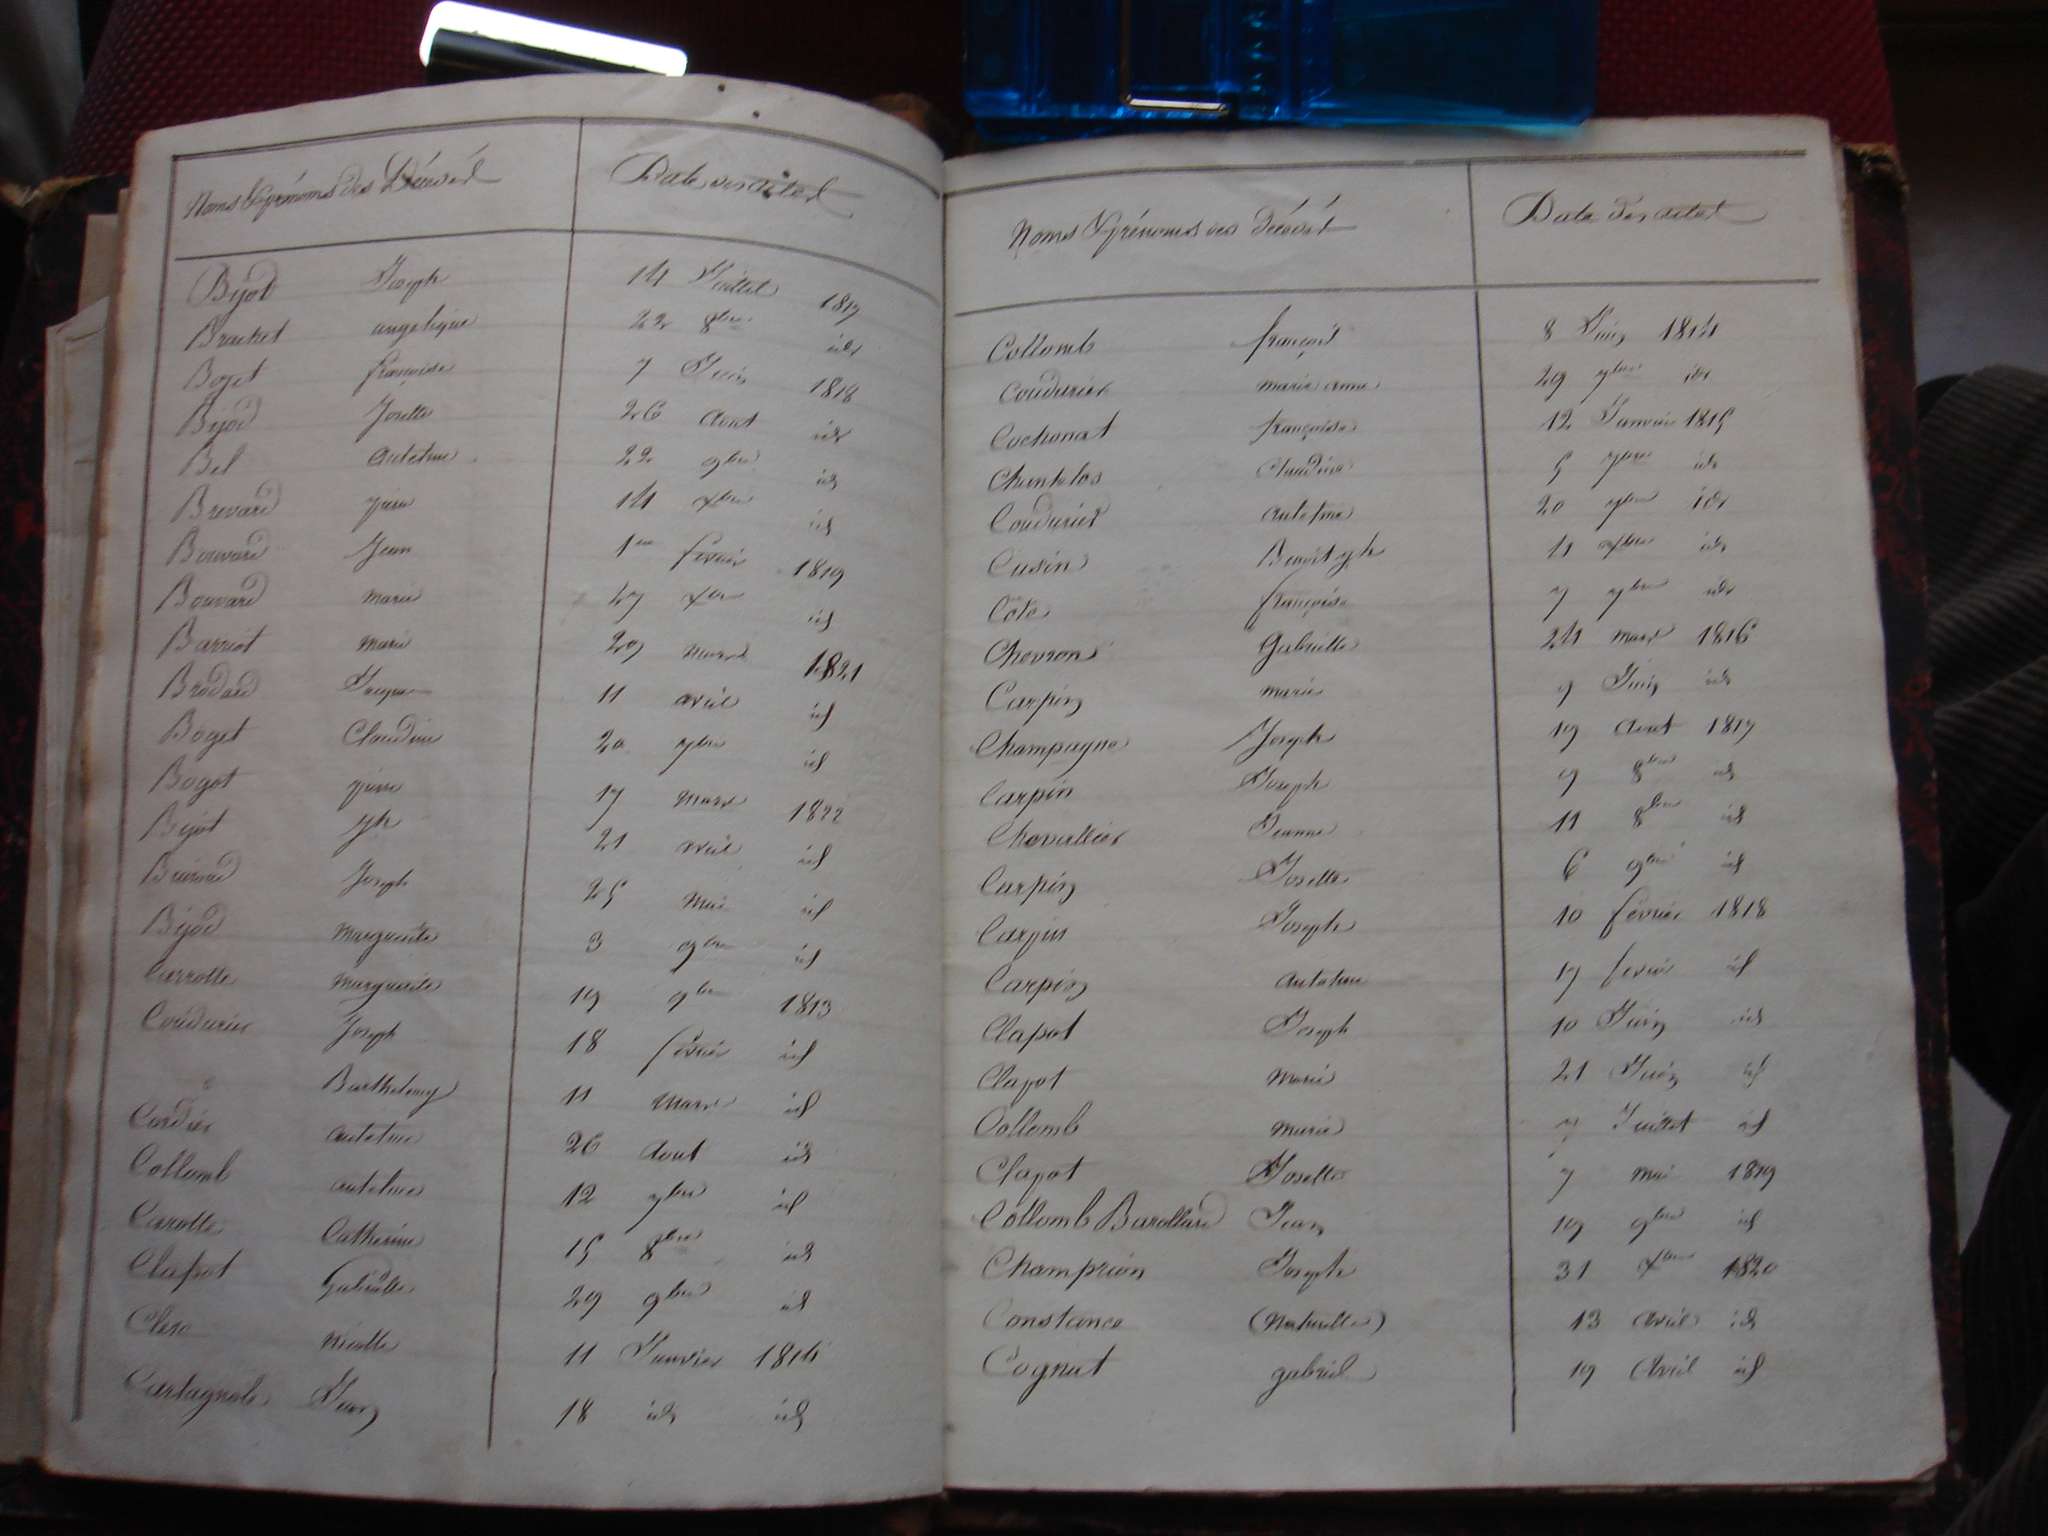 Noms & prénoms des Décédés Date des actes
Bijod Joseph 14 Juillet 1817
Brachet angelique 22 8bre id
Boget françoise 7 Juin 1818
Bijod Josette 26 aout id
Bel antelme 22 9bre id
Brevard pierre 14 xbre id
Bouvard Jean 1er fevrier 1819
Bouvard marie 27 xbre id
Barriot marie 29 mars 1821
Brodard Jacques 11 avril id
Boget Claudine 20 7bre id
Boget pierre 17 mars 1822
Bijot jph 21 avril id
Joseph 25 Mai id
Bijod marguerite 3 9bre id
Carrotte marguerite 19 9bre 1813
Coudurier Joseph 18 fevrier id
Barthelemy 11 Mars id
Cordier antelme 26 Aout id
Collomb antelme 12 7bre id
Carotte Catherine 15 8bre id
Clapot Gabrielle 29 9bre id
Clerc nicolle 11 Janvier 1814
Cartagnole Jean 18 id id
Noms & prénoms des décédés Date des actes
Collomb françois 8 Juin 1814
Coudurier marie anne 29 7bre id
Cochonat françoise 12 Janvier 1815
Chantelos Claudine 5 7bre id
Coudurier antelme 20 7bre id
Cusin Benoit jph 11 xbre id
Cote françoise 7 7bre id
Chevron Gabrielle 24 mars 1816
Carpin marie 9 Juin id
Champagne Joseph 19 Aout 1817
Carpin Joseph 9 8bre id
Chevallier Jeanne 11 8bre id
Carpin Josette 6 9bre id
Carpin Joseph 10 février 1818
Carpin antelme 17 fevrier id
Clapot Joseph 10 Juin id
Clapot marie 21 Juin id
Collomb marie 7 Juillet id
Clapot Josette 7 mai 1819
Collomb Barollard Jean 19 9bre id
Champrion Joseph 31 xbre 1820
Constance (Naturelle) 13 Avril id
Cognat gabriel 19 Avril id